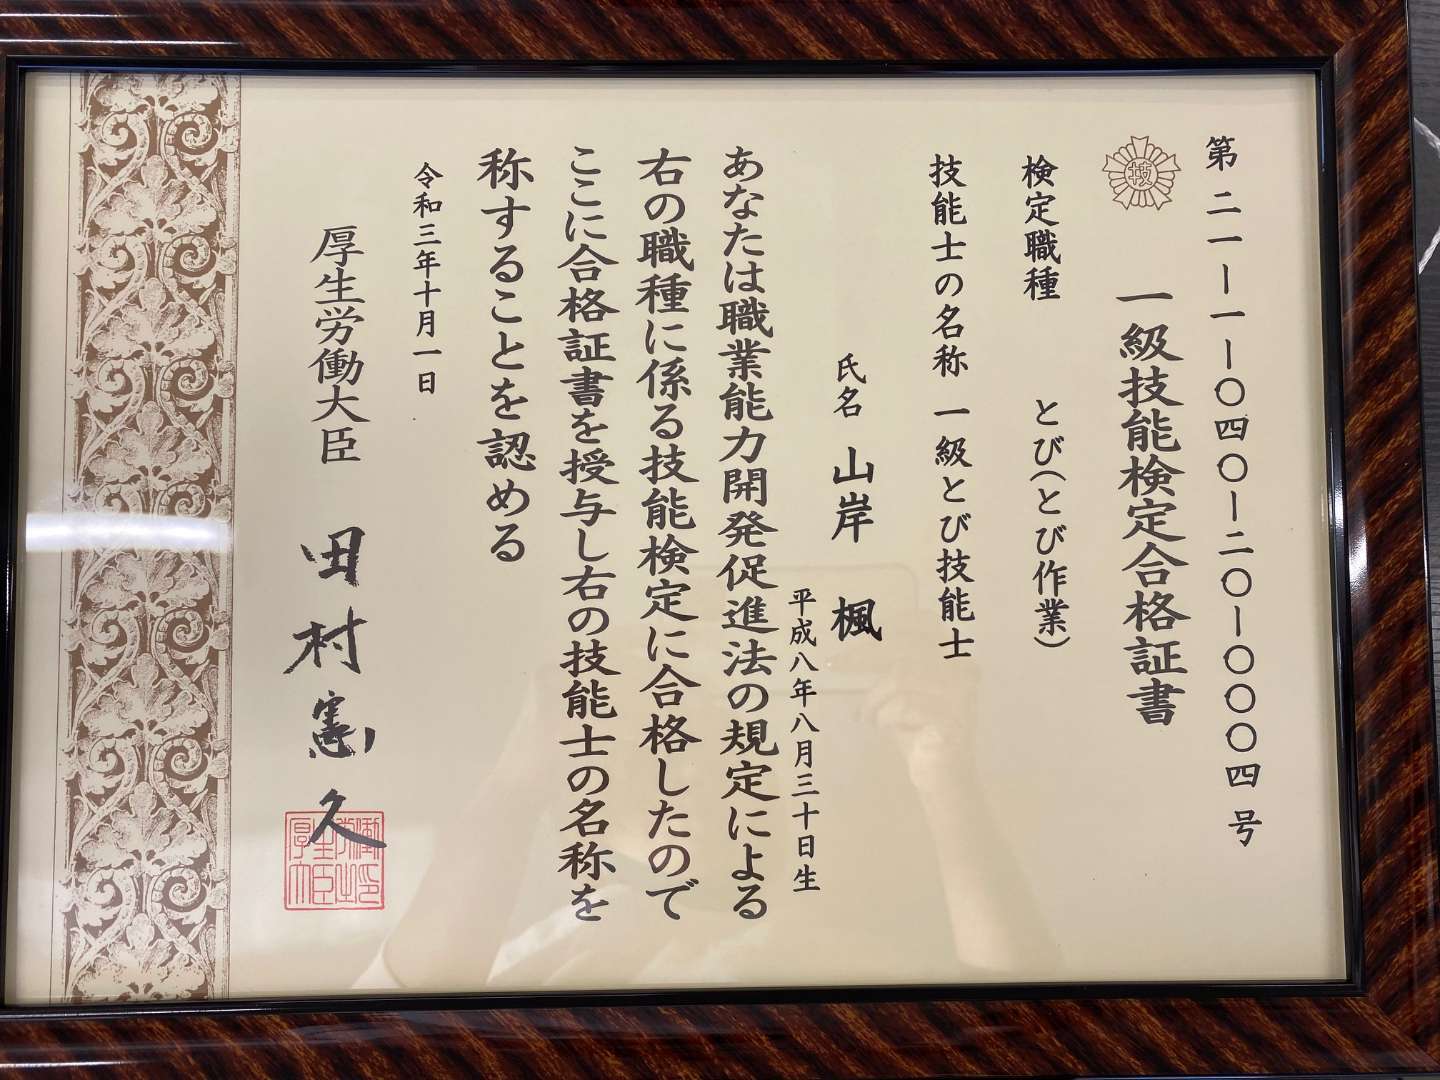 第二一ー一ー〇四〇ー二〇ー〇〇〇四号
技
一級技能検定合格証書
検定職種　とび(とび作業)
技能士の名称　一級とび技能士
氏名　山岸　楓
平成八年八月三十日生
あなたは職業能力開発促進法の規定による
右の職種に係る技能検定に合格したので
ここに合格証書を授与し右の技能士の名称を
称することを認める
令和三年十月一日
厚生労働大臣　田村憲久
厚生労働大臣之印